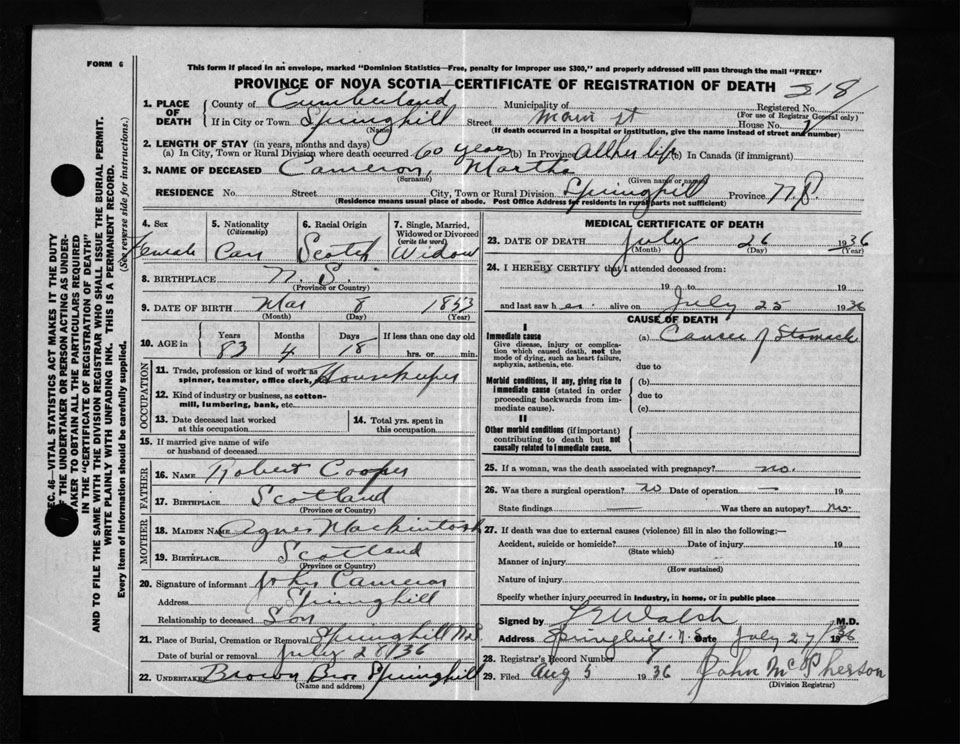 FORM 6
This form if placed in an envelope, marked "Dominion Statistics—Free, penalty for improper use $300," and properly addressed will pass through the mail "FREE"
PROVINCE OF NOVA SCOTIA—CERTIFICATE OF REGISTRATION OF DEATH 318
1. PLACE OF DEATH County of Cumberland Municipality of Registered No.
(For use of Registrar General only)
If in City or Town Springhill Street Main St House No.
(Name) (If death occurred in a hospital or institution, give the name instead of street and number)
2. LENGTH OF STAY (in years, months and days)
(a) In City, Town or Rural Division where death occurred 60 years (b) In Province All her life (c) In Canada (if immigrant)
3. NAME OF DECEASED Cameron, Martha
(Surname) (Given name or names)
RESIDENCE No. Street City, Town or Rural Division Springhill Province N.S.
(Residence means usual place of abode. Post Office Address for residents in rural parts not sufficient)
4. Sex Female
5. Nationality (Citizenship) Can
6. Racial Origin Scotch
7. Single, Married, Widowed or Divorced (write the word) Widow
8. BIRTHPLACE N. S.
(Province or Country)
9. DATE OF BIRTH Mar 8 1853
(Month) (Day) (Year)
10. AGE in Years 83 Months 4 Days 18 If less than one day old hrs. or min.
OCCUPATION
11. Trade, profession or kind of work as spinner, teamster, office clerk, Housekeeper
12. Kind of industry or business, as cotton-mill, lumbering, bank, etc.
13. Date deceased last worked at this occupation
14. Total yrs. spent in this occupation
15. If married give name of wife or husband of deceased
FATHER
16. NAME Robert Cooper
17. BIRTHPLACE Scotland
(Province or Country)
MOTHER
18. MAIDEN NAME Agnes Mackintosh
19. BIRTHPLACE Scotland
(Province or Country)
20. Signature of informant John Cameron
Address Springhill
Relationship to deceased Son
21. Place of Burial, Cremation or Removal Springhill N.S.
Date of burial or removal July 28/36
22. UNDERTAKER Brown Bros Springhill
(Name and address)
MEDICAL CERTIFICATE OF DEATH
23. DATE OF DEATH July 26 1936
(Month) (Day) (Year)
24. I HEREBY CERTIFY that I attended deceased from:
19 to 19
and last saw her alive on July 25 1936
CAUSE OF DEATH
I
Immediate cause
Give disease, injury or complication which caused death, not the mode of dying, such as heart failure, asphyxia, asthenia, etc.
(a) Cancer of Stomach
due to
Morbid conditions, if any, giving rise to immediate cause (stated in order proceeding backwards from immediate cause).
(b)
due to
(c)
II
Other morbid conditions (if important) contributing to death but not causally related to immediate cause.
25. If a woman, was the death associated with pregnancy? no.
26. Was there a surgical operation? no Date of operation — 19
State findings — Was there an autopsy? no.
27. If death was due to external causes (violence) fill in also the following:—
Accident, suicide or homicide? Date of injury 19
(State which)
Manner of injury
(How sustained)
Nature of injury
Specify whether injury occurred in industry, in home, or in public place
Signed by Walsh M.D.
Address Springhill N.S. Date July 27/1936
28. Registrar's Record Number
29. Filed Aug 5 1936 John McPherson
(Division Registrar)
SEC. 46—VITAL STATISTICS ACT MAKES IT THE DUTY
OF THE UNDERTAKER OR PERSON ACTING AS UNDER-
TAKER TO OBTAIN ALL THE PARTICULARS REQUIRED
IN THE "CERTIFICATE OF REGISTRATION OF DEATH"
AND TO FILE THE SAME WITH THE DIVISION REGISTRAR WHO SHALL ISSUE THE BURIAL PERMIT.
WRITE PLAINLY WITH UNFADING INK. THIS IS A PERMANENT RECORD.
Every item of information should be carefully supplied. (See reverse side for instructions.)